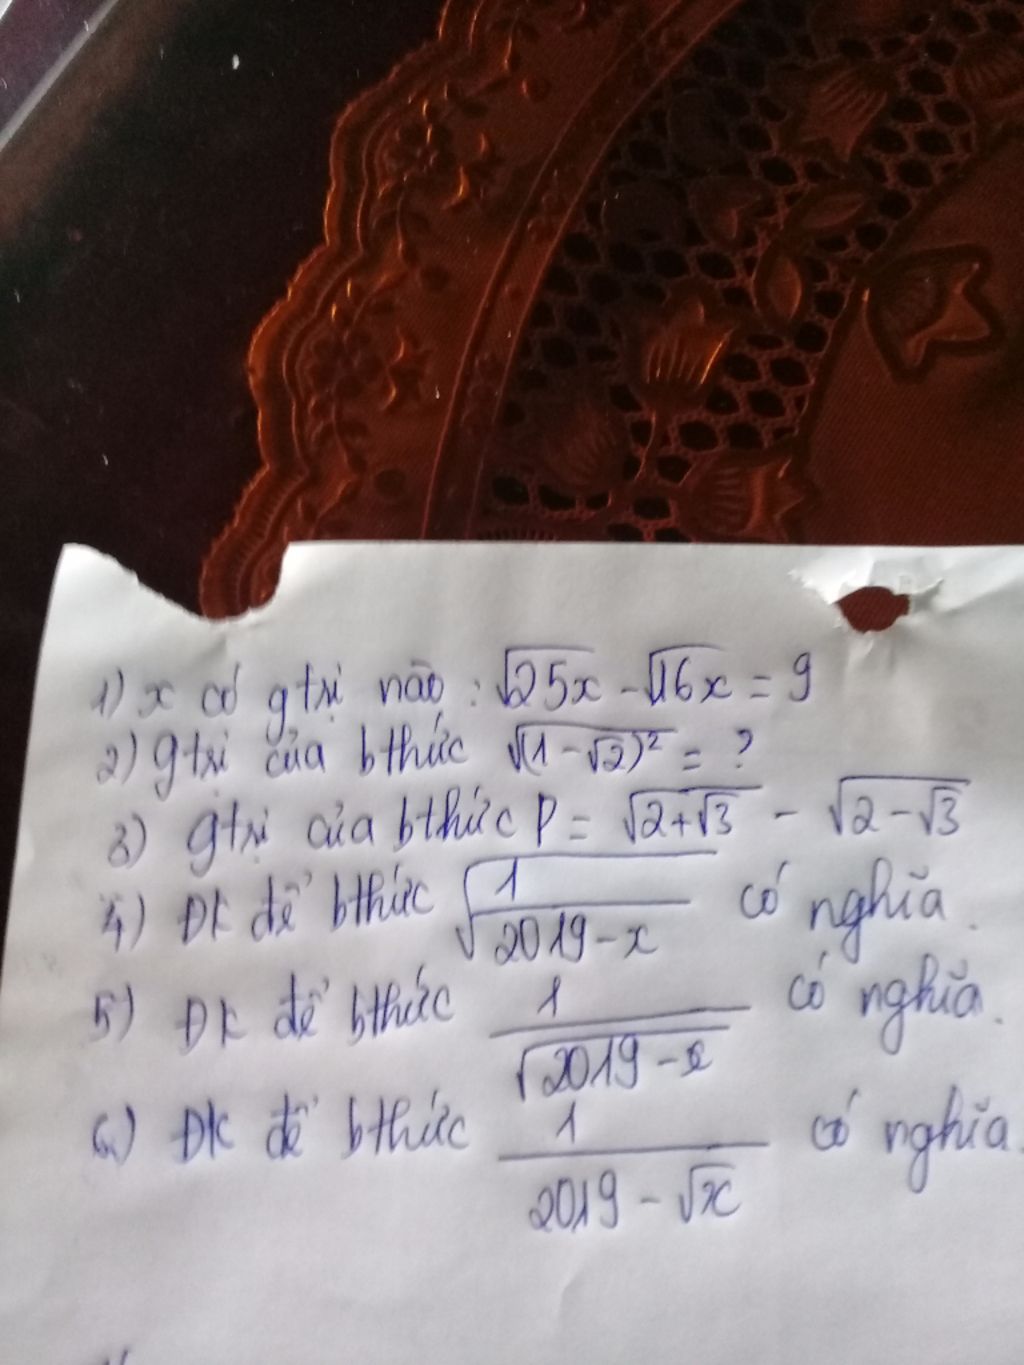 1) x có gtrị nào : √25x - √16x = 9
2) gtrị của bthức √(1-√2)² = ?
3) gtrị của bthức P = √2+√3 - √2-√3
4) ĐK để bthức √1/2019-x có nghĩa.
5) ĐK để bthức 1/√2019-x có nghĩa.
6) ĐK để bthức 1/2019-√x có nghĩa.